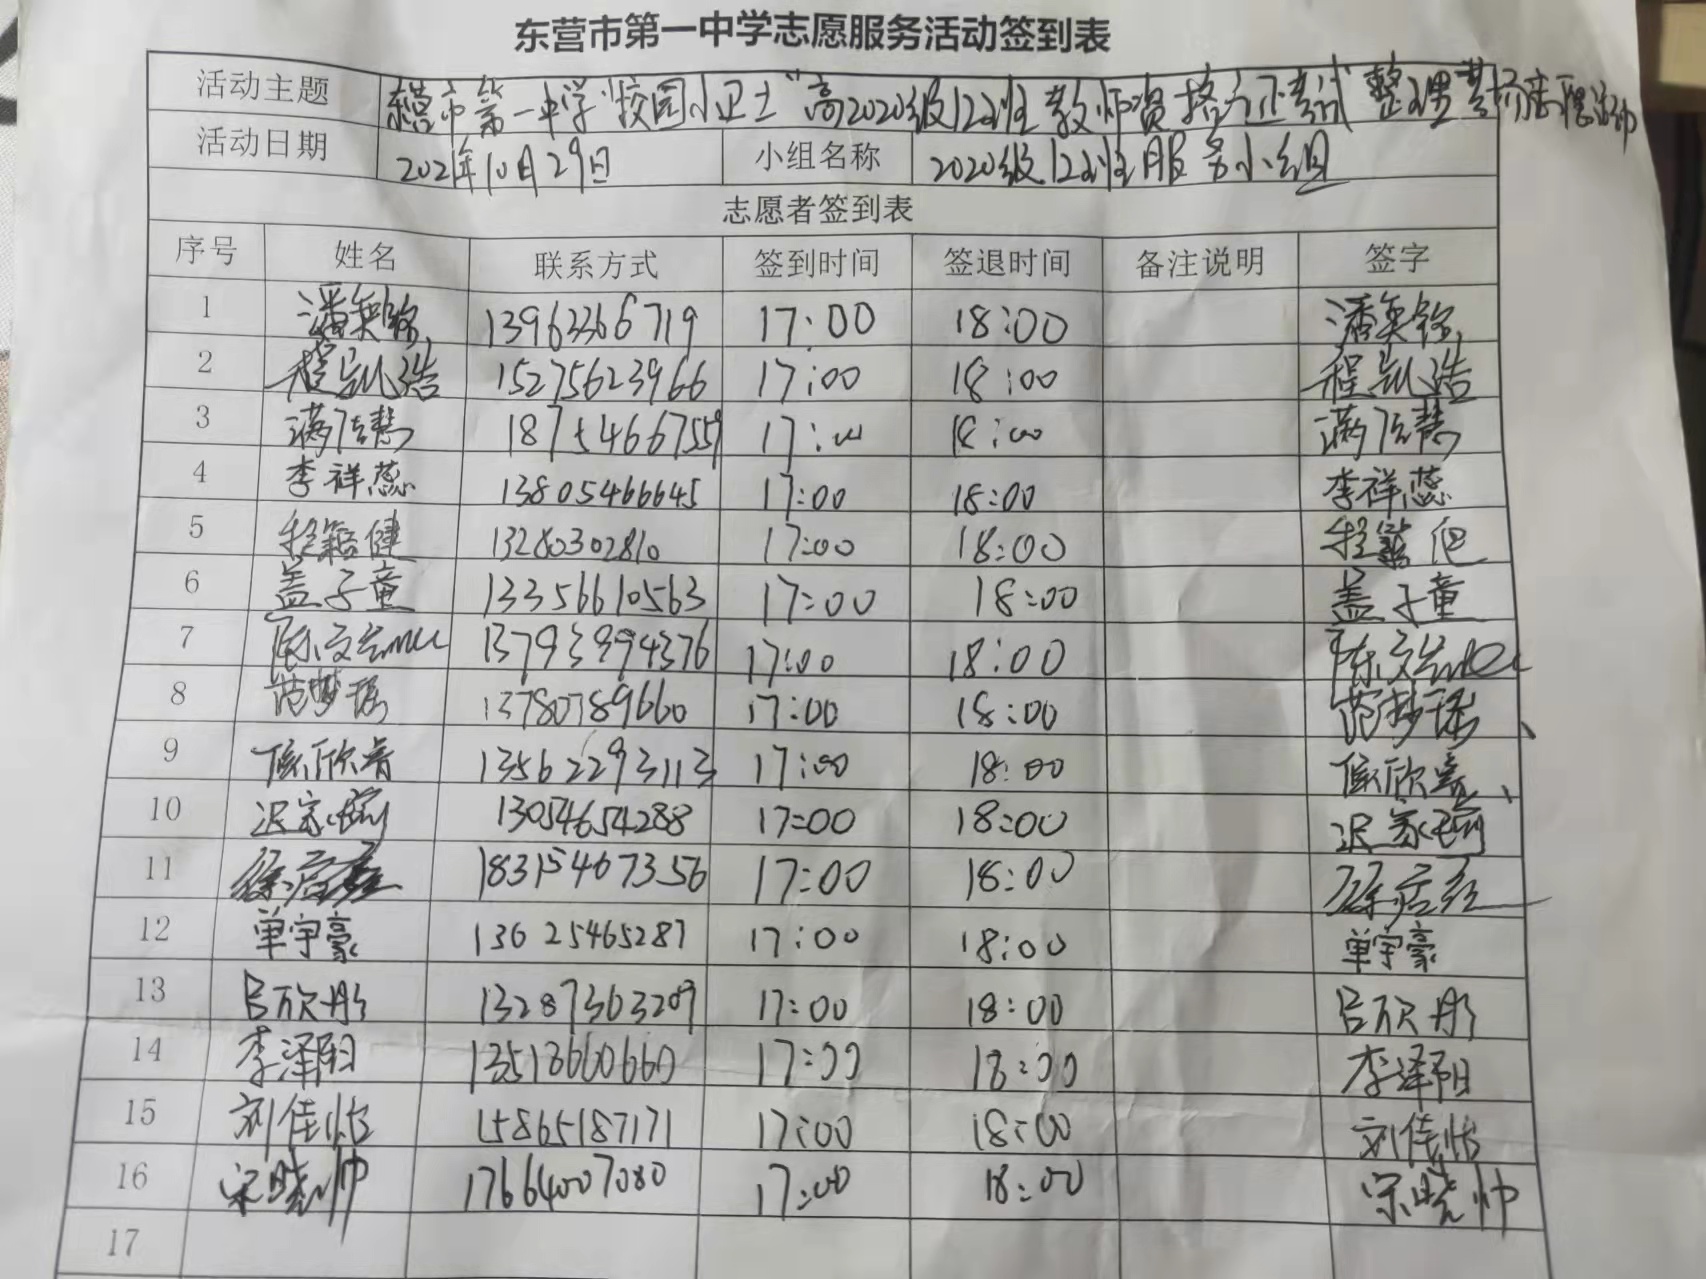 东营市第一中学志愿服务活动签到表
活动主题 东营市第一中学"校园小卫士"高2020级12班教师资格证考试整理考场志愿活动
活动日期 2021年10月29日 小组名称 2020级12班服务小组
志愿者签到表
序号 姓名 联系方式 签到时间 签退时间 备注说明 签字
1 潘奕 13963366719 17:00 18:00 潘奕
2 程凯浩 15275623966 17:00 18:00 程凯浩
3 满 慧 18754667559 17:00 18:00 满 慧
4 李祥蕊 13805466645 17:00 18:00 李祥蕊
5 健 13280302810 17:00 18:00
6 盖子童 13356610563 17:00 18:00 盖子童
7 陈文 13793994376 17:00 18:00 陈文
8 范梦瑶 13780789660 17:00 18:00 范梦瑶
9 欣 13562293113 17:00 18:00 欣
10 迟家 13054654288 17:00 18:00 迟家
11 徐 18315467356 17:00 18:00 徐
12 单宇豪 13625465287 17:00 18:00 单宇豪
13 吕欣彤 13287363209 17:00 18:00 吕欣彤
14 李泽阳 13518660660 17:00 18:00 李泽阳
15 刘佳怡 15865187171 17:00 18:00 刘佳怡
16 宋晓帅 17664007080 17:00 18:00 宋晓帅
17